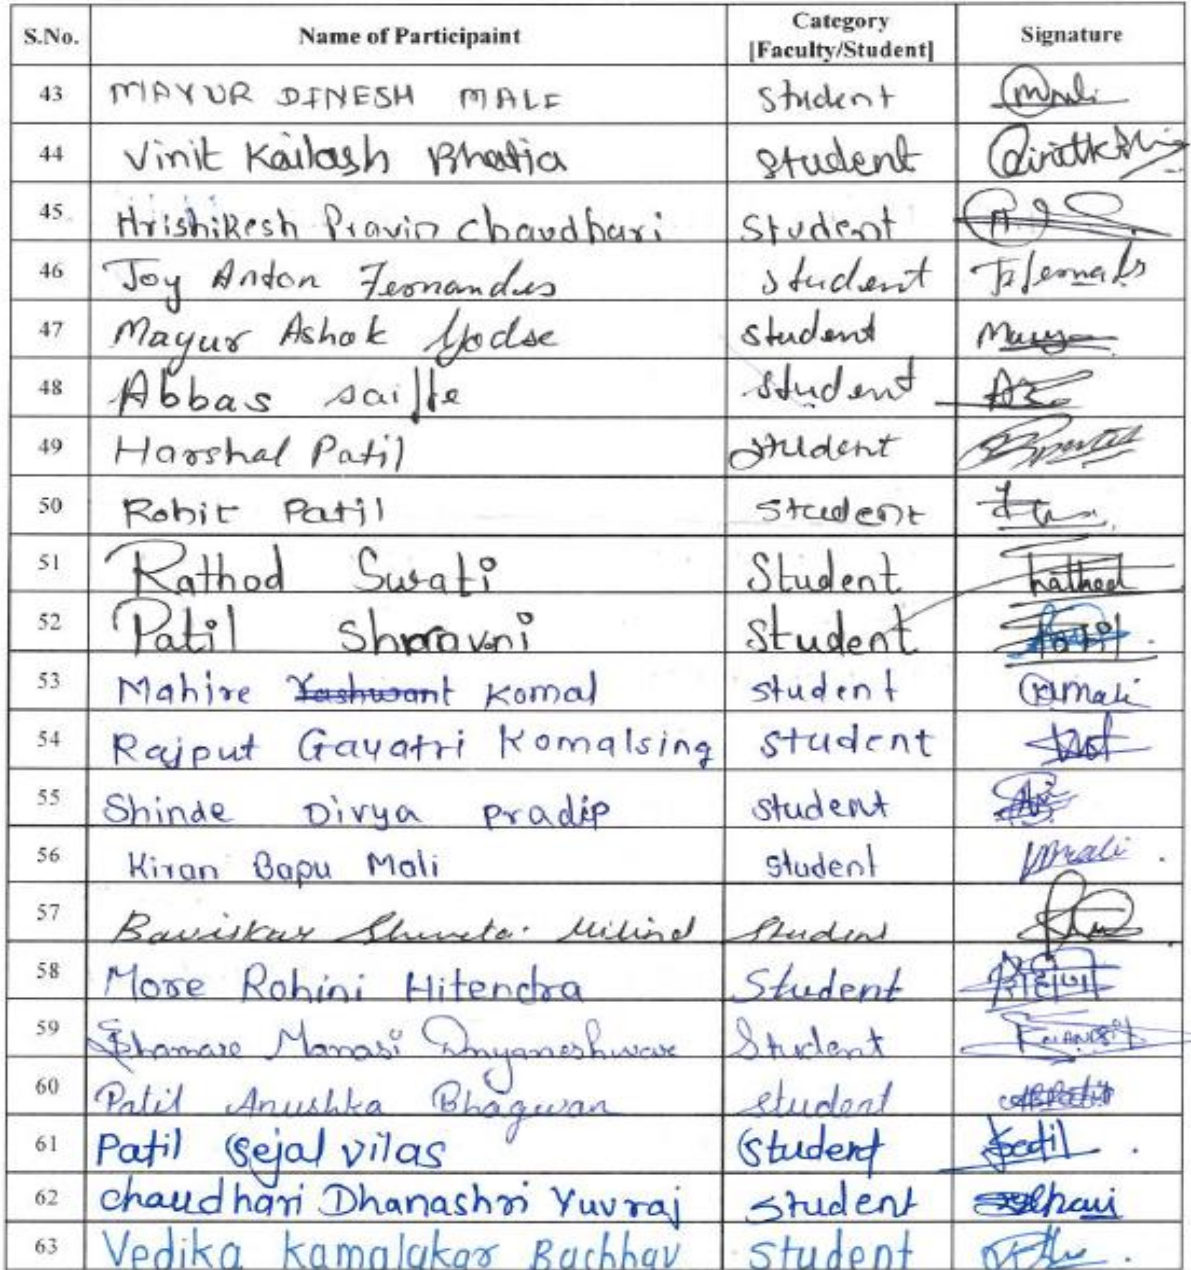 S.No. Name of Participaint Category [Faculty/Student] Signature
43 MAYUR DINESH MALE Student
44 Vinit Kailash Bhatia Student
45 Hrishikesh Pravin Chaudhari Student
46 Joy Anton Fernandes Student
47 Mayur Ashok Godse Student
48 Abbas Student
49 Harshal Patil Student
50 Rohit Patil Student
51 Rathod Swati Student Rathod
52 Patil Shravni Student Patil
53 Mahire Yashwant Komal Student
54 Rajput Gayatri Komalsing Student
55 Shinde Divya pradip Student
56 Kiran Bapu Mali Student
57 Baviskar Shweta Milind Student
58 More Rohini Hitendra Student
59 Bhamare Manasi Dnyaneshwar Student
60 Patil Anushka Bhagwan Student
61 Patil Sejal vilas Student
62 chaudhari Dhanashri Yuvraj Student
63 Vedika kamalakar Bachhav Student